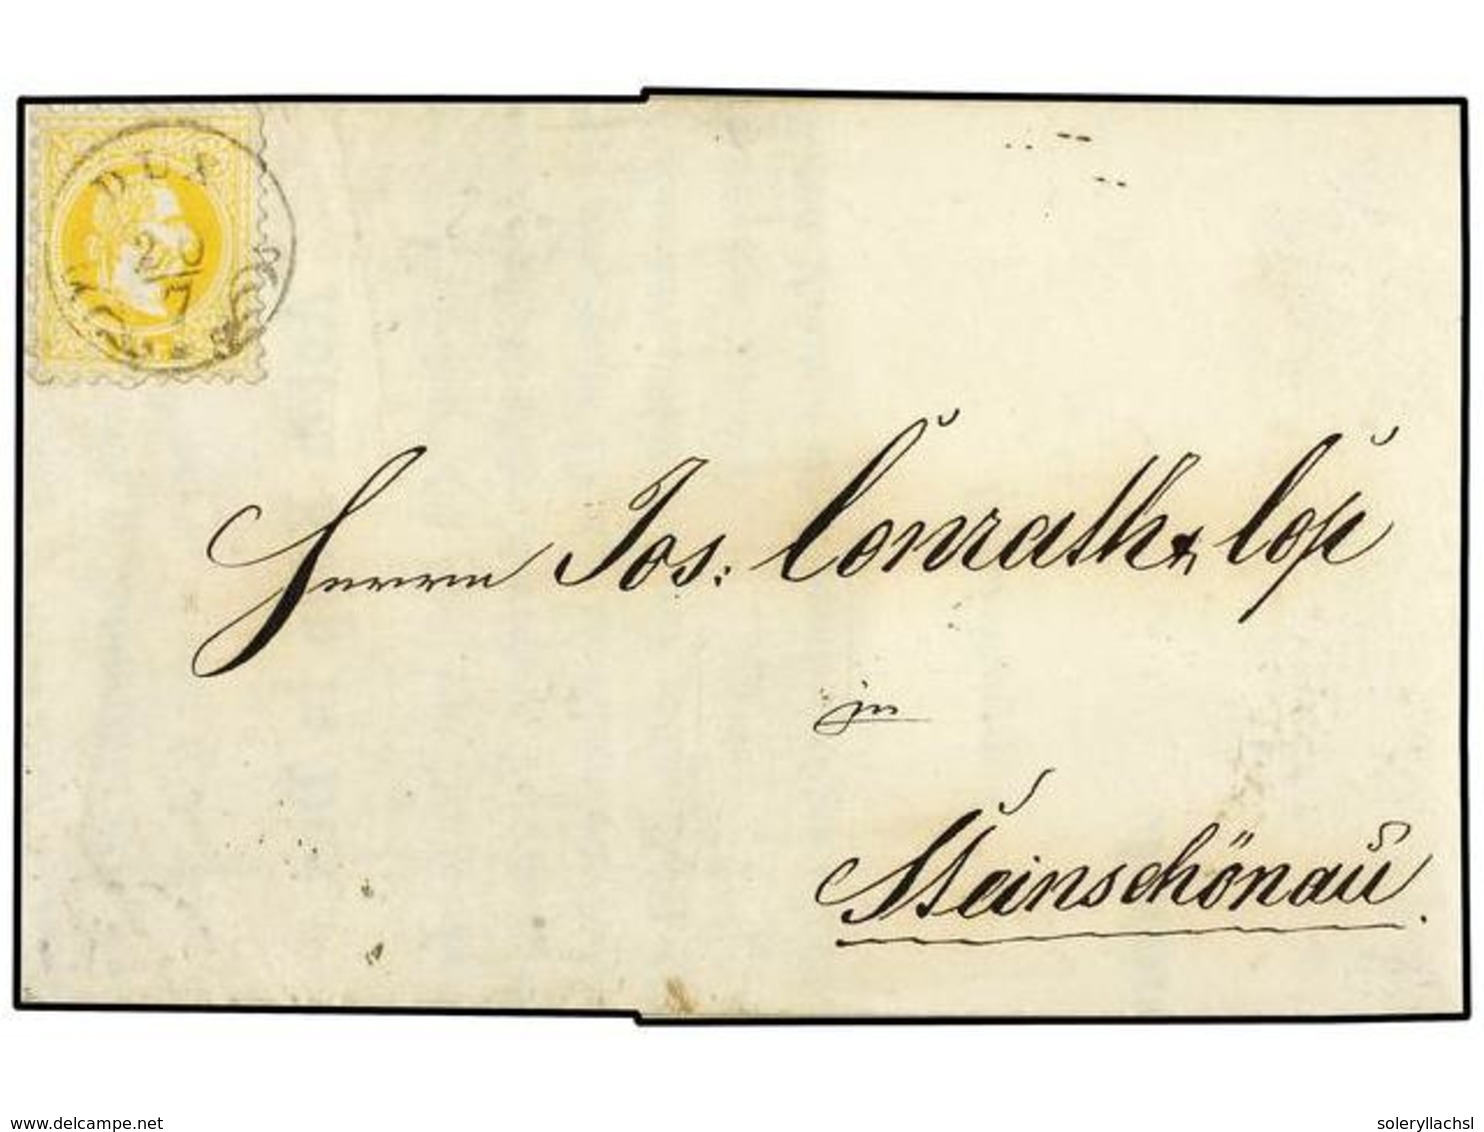 DUX
20
7
Herrn Jos: Conrath & Cos
in
Steinschönau
delcampe.net
soleryllachsl